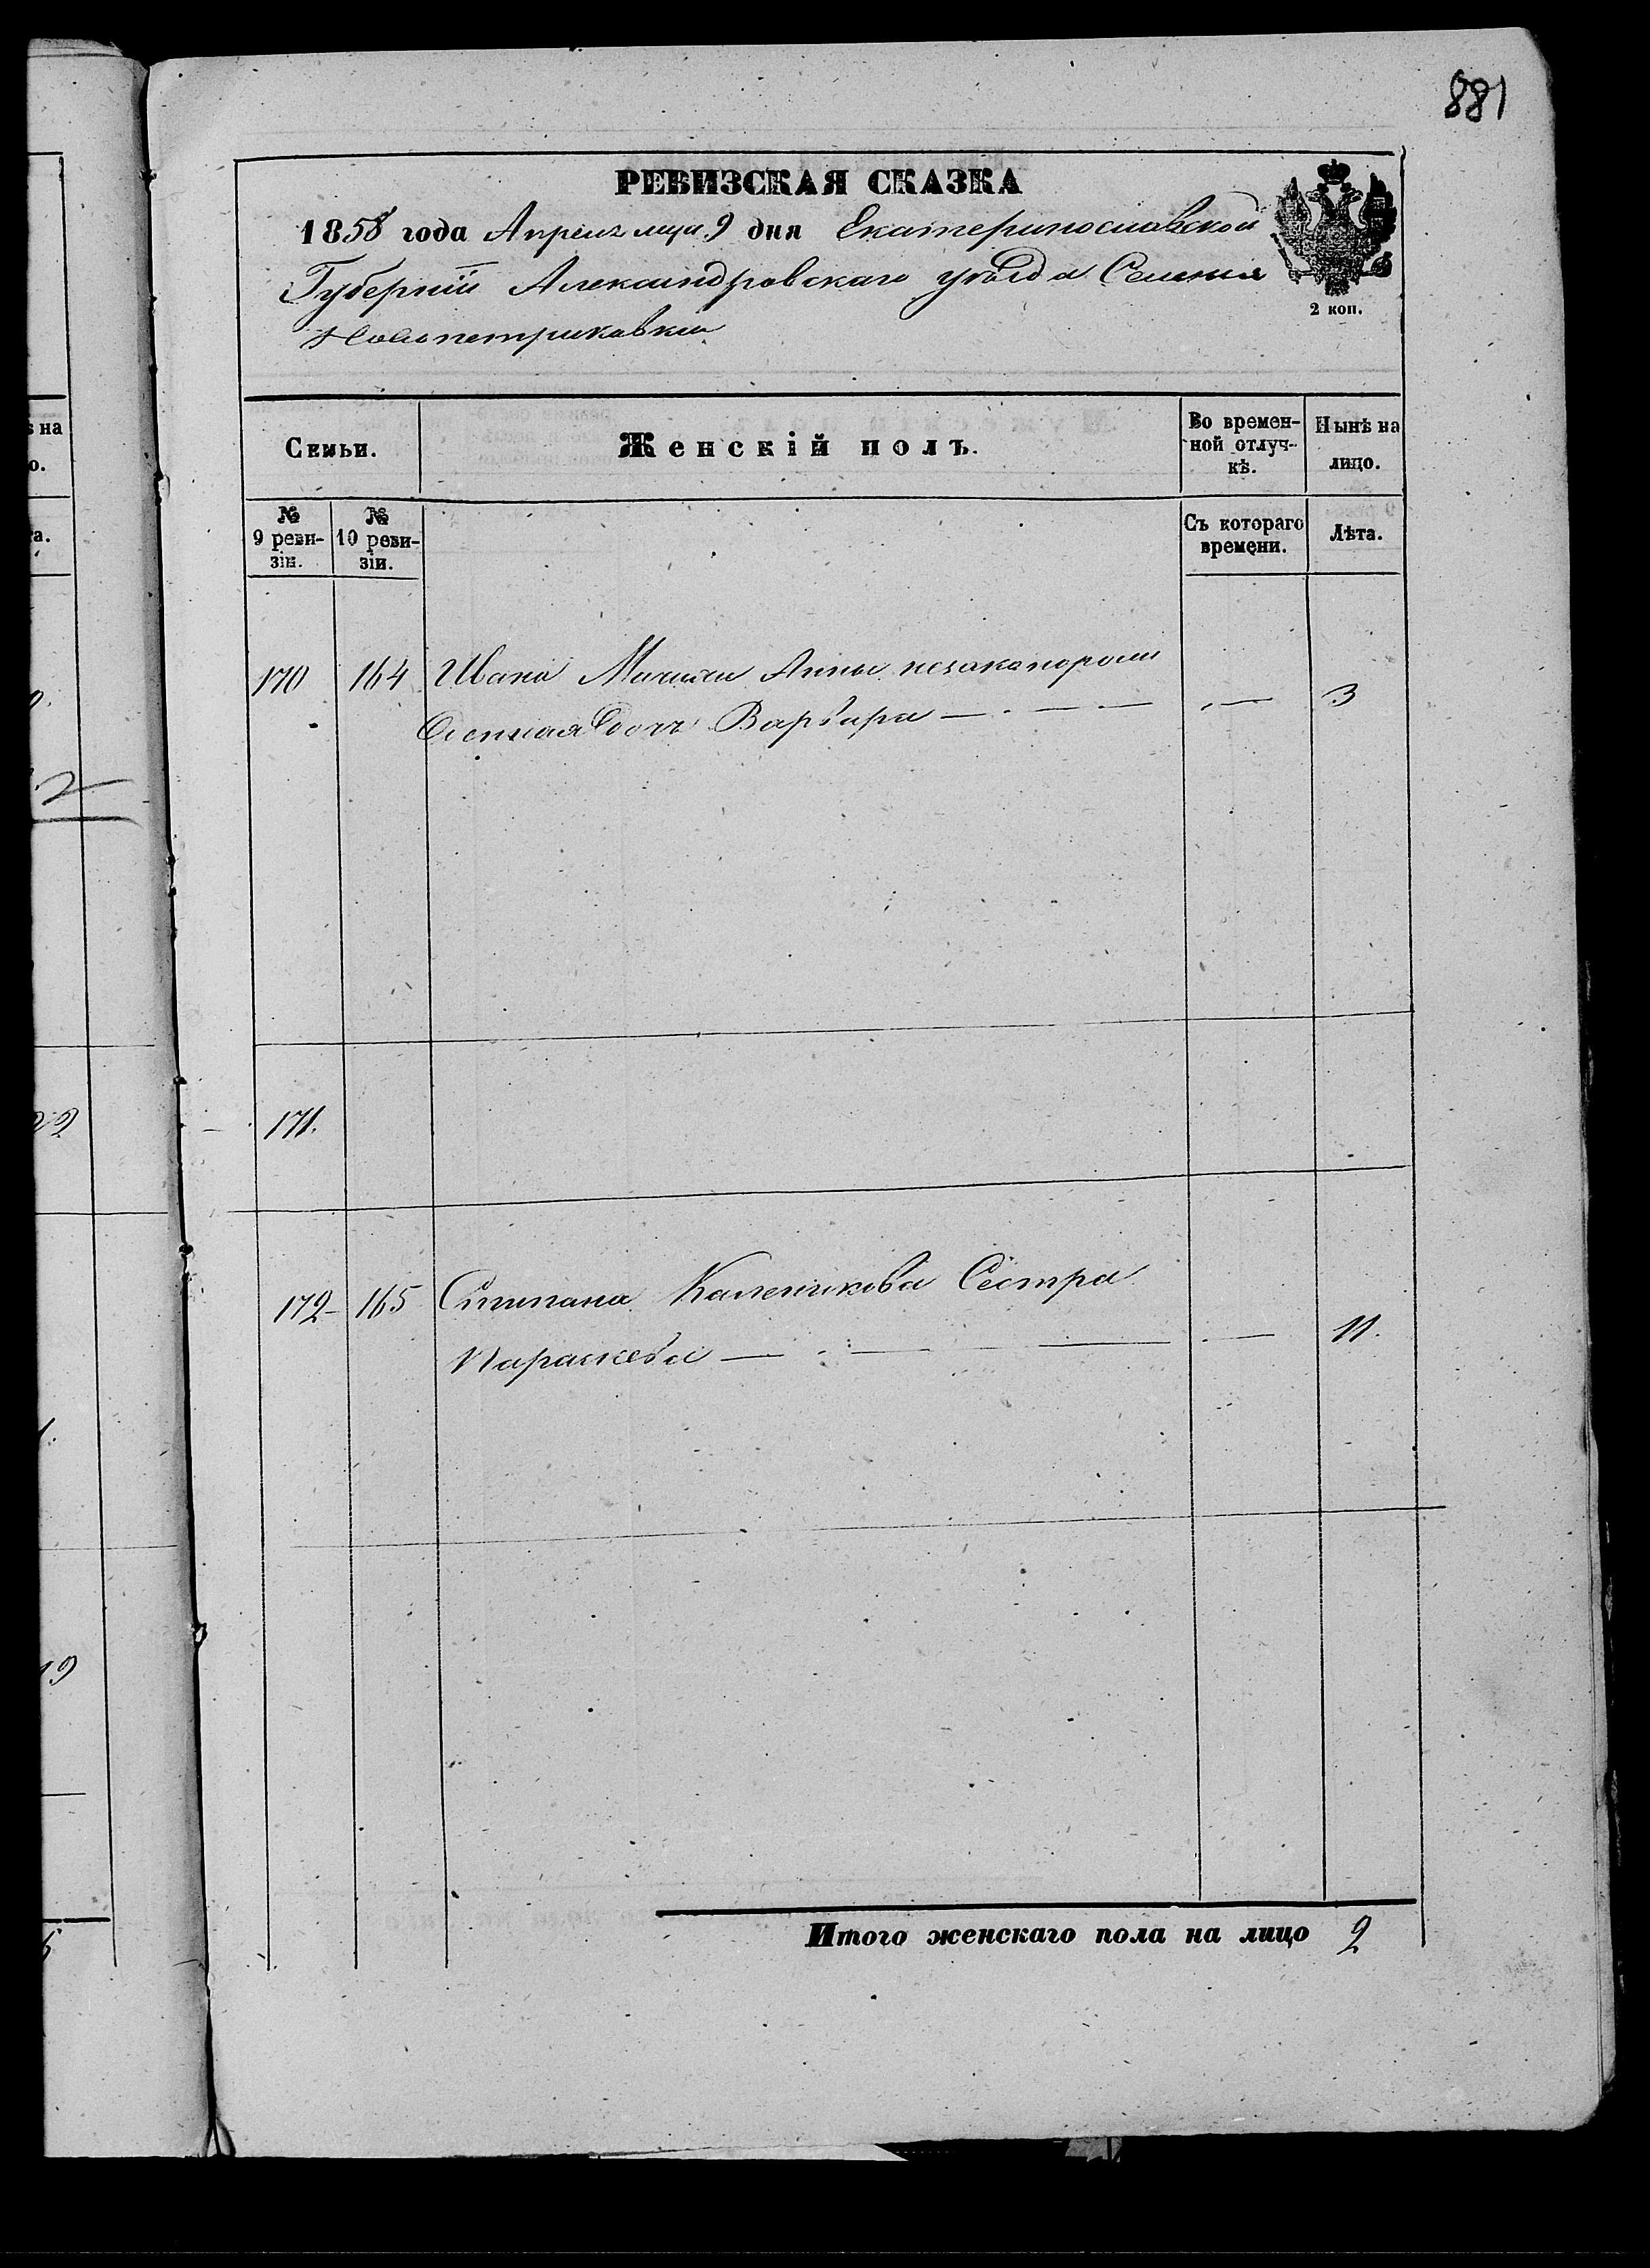 881
РЕВИЗСКАЯ СКАЗКА
1858 года Апреля мца 9 дня Екатеринославской
Губернiи Александровскаго уѣзда Селенiя
Новопетриковки
2 коп.
Семьи.
Женскій полъ.
Во времен-
ной отлуч-
кѣ.
Нынѣ на
лицо.
№
9 реви-
зіи.
№
10 реви-
зіи.
Съ котораго
времени.
Лѣта.
170 164 Ивана Мачихи Анны незаконорож
денная дочь Варвара — — — — 3
171.
172 - 165 Стипана Каленикова Сестра
Параскева — — — — 11.
Итого женскаго пола на лицо 2
на
о.
а.
2
22
19
5